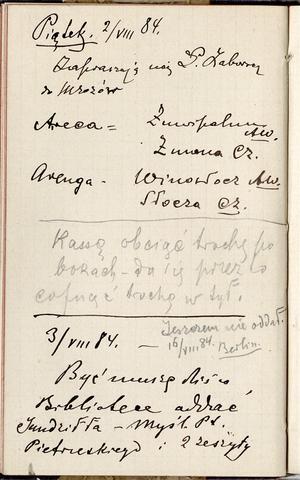 Piątek. 2/VIII 84.
Zapraszają nas P. Zaborscy
z Mrozów
Areca =
Żuwipalma AW.
Żuwna Cz.
Arenga -
Winowłocz AW.
Słocza Cz.
Kassę obciąć trochę po
bokach - da się przez to
cofnąć trochę w tył.
3/VIII 84. -
Jeszczem nie oddał.
16/VIII 84. Berlin.
Być muszę dziś w
Bibliotece oddać
Jundziłła - Myśl. Pt.
Pietruskiego i 2 zeszyty